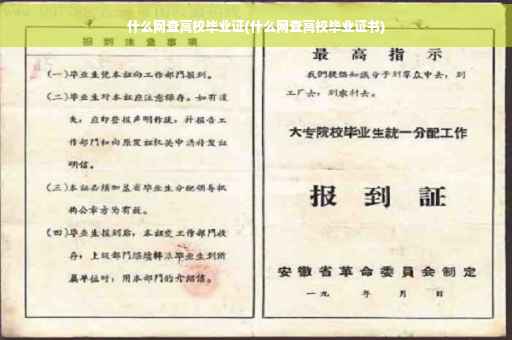 什么网查高校毕业证(什么网查高校毕业证书)
报到注意事项
(一)毕业生凭本证向工作部门报到。
(二)毕业生对本证应注意保存。如有遗
失，应即登报声明作废，并报告工
作部门和向原发证机关申请补发证
明信。
(三)本证必须加盖省毕业生分配领导机
构公章方为有效。
(四)毕业生报到后，本证交工作部门收
存；上级部门继续转派毕业生到所
属单位时，用本部门的介绍信。
最高指示
我们提倡知识分子到群众中去，到
工厂去，到农村去。
大专院校毕业生统一分配工作
报到证
安徽省革命委员会制定
一九 年 月 日